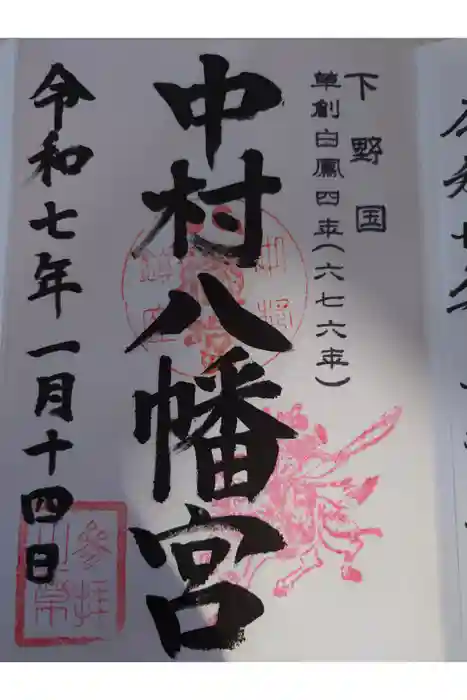 下野国
草創白鳳四年(六七六年)
中村八幡宮
令和七年一月十四日
参拝